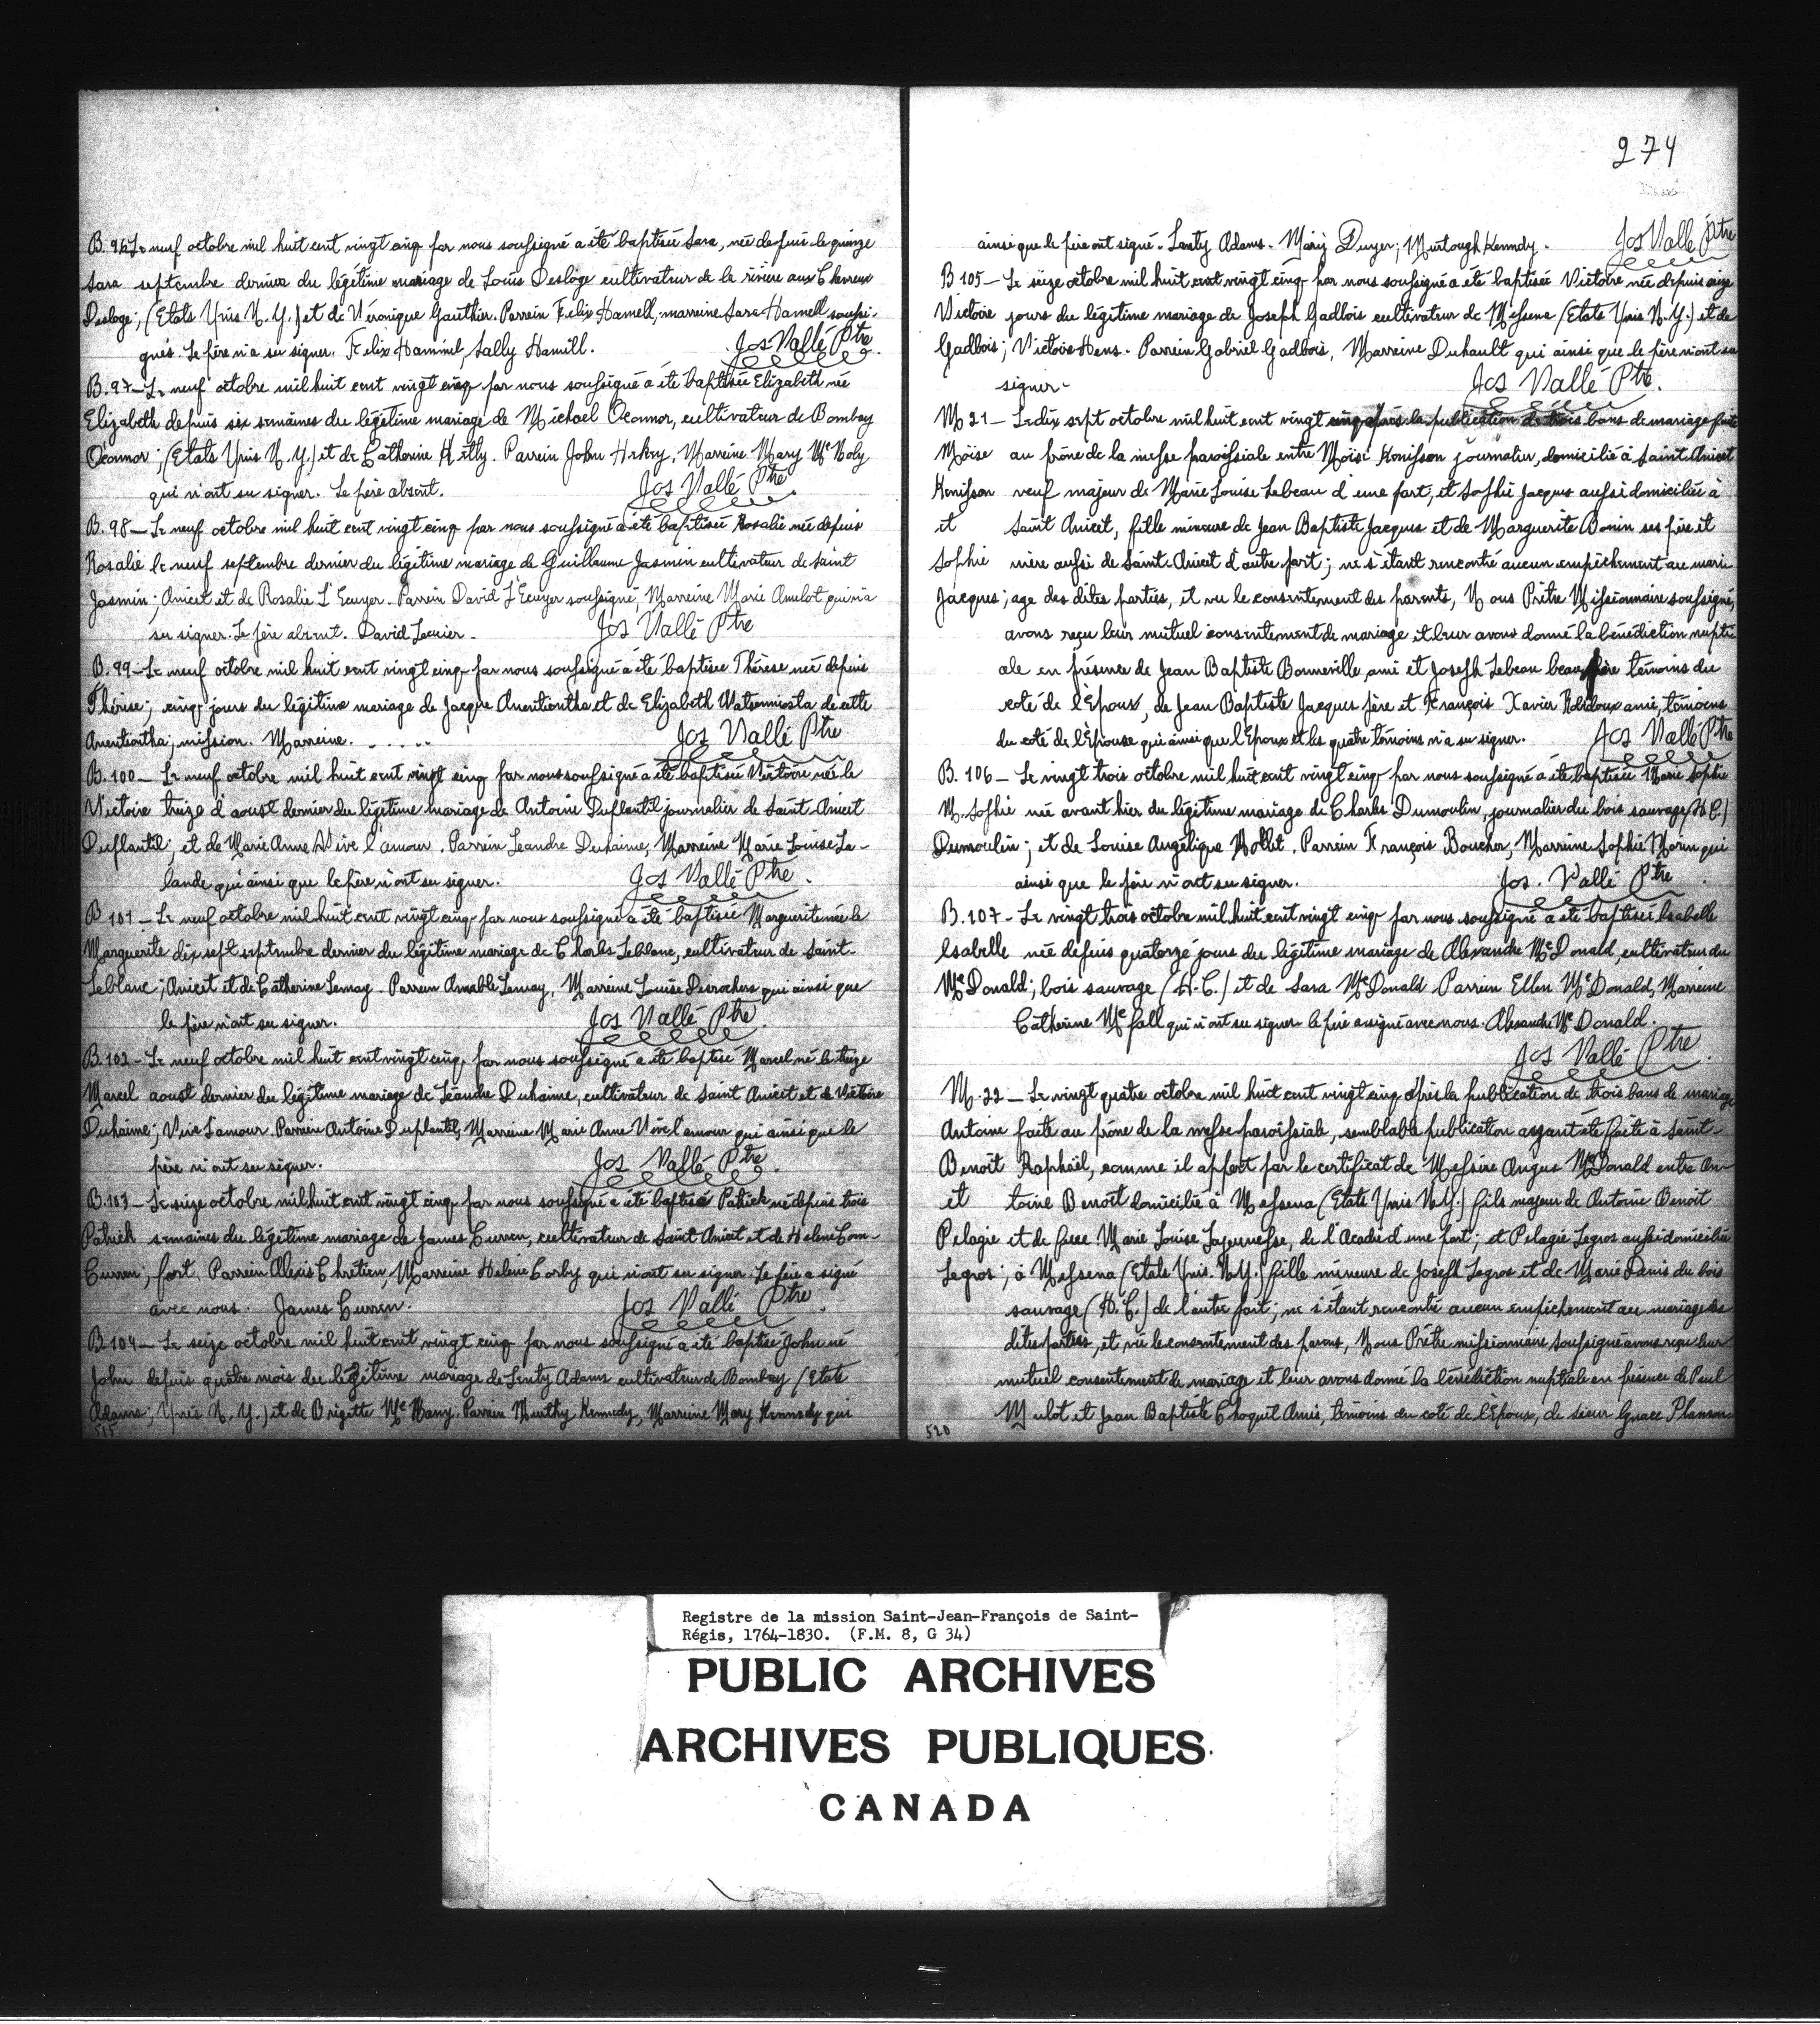 B. 96 Le neuf octobre mil huit cent vingt cinq par nous soussigné a été baptisée Sara, née depuis le quinze
Sara septembre dernier du légitime mariage de Louis Desloge cultivateur de la rivière aux
Desloge; (Etats Unis N. Y.) et de Véronique Gauthier. Parrein Felix Hamell, marreine Sara Hamell soussi-
gnés. Le père n'a su signer. Felix Hammel, Sally Hamill. Jos Vallé Ptre.
B. 97 — Le neuf octobre mil huit cent vingt cinq par nous soussigné a été baptisée Elizabeth née
Elizabeth depuis six semaines du légitime mariage de Michael Oconnor, cultivateur de Bombay
Oconnor; (Etats Unis N. Y.) et de Catherine. Parrein John, Marreine Mary
qui n'ont su signer. Le père absent. Jos Vallé Ptre.
B. 98 — Le neuf octobre mil huit cent vingt cinq par nous soussigné a été baptisée Rosalie née depuis
Rosalie le neuf septembre dernier du légitime mariage de Guillaume Jasmin cultivateur de saint
Jasmin; Anicet et de Rosalie L'Ecuyer. Parrein David L'Ecuyer soussigné, Marreine Marie Amelot qui n'a
su signer. Le père absent. David Jos Vallé Ptre
B. 99 — Le neuf octobre mil huit cent vingt cinq par nous soussigné a été baptisée Thérèse née depuis
Thérèse; cinq jours du légitime mariage de Jacque Anentiontha et de Elizabeth de cette
Anentiontha; mission. Marreine. ..... Jos Vallé Ptre
B. 100 — Le neuf octobre mil huit cent vingt cinq par nous soussigné a été baptisée Victoire née le
Victoire treize d'aoust dernier du légitime mariage de Antoine Duplantil journalier de Saint Anicet
Duplantil; et de Marie Anne Vive l'amour. Parrein Leandre Duhaime, Marreine Marie Louise La-
lande qui ainsi que le père n'ont su signer. Jos Vallé Ptre.
B 101 — Le neuf octobre mil huit cent vingt cinq par nous soussigné a été baptisée Marguerite née le
Marguerite dix sept septembre dernier du légitime mariage de Charles Leblanc, cultivateur de Saint-
Leblanc; Anicet et de Catherine Lemay. Parrein Amable Lemay, Marreine Louise Desrochers qui ainsi que
le père n'ont su signer. Jos Vallé Ptre.
B. 102 — Le neuf octobre mil huit cent vingt cinq par nous soussigné a été baptisé Marcel né le treize
Marcel aoust dernier du légitime mariage de Léandre Duhaime, cultivateur de Saint Anicet et de Victoire
Duhaime; Vive l'amour. Parrein Antoine Duplantil, Marreine Marie Anne Vive l'amour qui ainsi que le
père n'ont su signer. Jos Vallé Ptre.
B. 103 — Le seize octobre mil huit cent vingt cinq par nous soussigné a été baptisé Patrick né depuis trois
Patrick semaines du légitime mariage de James Curren, cultivateur de Saint Anicet et de Helene Com-
Curren; fort. Parrein Alexis Chretien, Marreine Helene Corby qui n'ont su signer. Le père a signé
avec nous. James Curren. Jos Vallé Ptre.
B. 104 — Le seize octobre mil huit cent vingt cinq par nous soussigné a été baptisé John né
John depuis quatre mois du légitime mariage de Lenty Adams cultivateur de Bombay (Etats
Adams; Unis N. Y.) et de Brigette. Parrein Murthy Kennedy, Marreine Mary Kennedy qui
515
274
ainsi que le père ont signé. Lenty Adams. Mary Dwyer; Murtough Kennedy. Jos Vallé Ptre
B 105 — Le seize octobre mil huit cent vingt cinq par nous soussigné a été baptisée Victoire née depuis
Victoire jours du légitime mariage de Joseph Gadbois cultivateur de Messena (Etats Unis N. Y.) et de
Gadbois; Victoire Hens. Parrein Gabriel Gadbois, Marreine Duhault qui ainsi que le père n'ont su
signer. Jos Vallé Ptre.
M 21 — Le dix sept octobre mil huit cent vingt cinq après la publication de trois bans de mariage faite
Moïse au prône de la messe paroissiale entre Moïse Kenisson journalier, domicilié à Saint Anicet
Kenisson veuf majeur de Marie Louise Lebeau d'une part, et Sophie Jacques aussi domiciliée à
et Saint Anicet, fille mineure de Jean Baptiste Jacques et de Marguerite Bonin ses père et
Sophie mère aussi de Saint-Anicet d'autre part; ne s'étant rencontré aucun empêchement au mari-
Jacques; age des dites parties, et vu le consentement des parents, Nous Prêtre Missionnaire soussigné,
avons reçu leur mutuel consentement de mariage et leur avons donné la bénédiction nupti-
ale en présence de Jean Baptiste Bonneville ami et Joseph Lebeau beau père témoins du
coté de l'Epoux, de Jean Baptiste Jacques père et François Xavier Robidoux ami, témoins
du coté de l'Epouse qui ainsi que l'Epoux et les quatre témoins n'a su signer. Jos Vallé Ptre
B. 106 — Le vingt trois octobre mil huit cent vingt cinq par nous soussigné a été baptisée Marie Sophie
M. Sophie née avant hier du légitime mariage de Charles Dumoulin, journalier du bois sauvage (H. C.)
Dumoulin; et de Louise Angélique Mollet. Parrein François Boucher, Marreine Sophie Morin qui
ainsi que le père n'ont su signer. Jos. Vallé Ptre
B. 107 — Le vingt trois octobre mil huit cent vingt cinq par nous soussigné a été baptisée Isabelle
Isabelle née depuis quatorze jours du légitime mariage de Alexandre McDonald, cultivateur du
McDonald; bois sauvage (H. C.) et de Sara McDonald. Parrein Ellen McDonald, Marreine
Catherine McFall qui n'ont su signer le père a signé avec nous. Alexandre McDonald.
Jos Vallé Ptre.
M. 22 — Le vingt quatre octobre mil huit cent vingt cinq après la publication de trois bans de mariage
Antoine faite au prône de la messe paroissiale, semblable publication ayant été faite à Saint-
Benoit Raphaël, comme il appert par le certificat de Messire Angus McDonald entre An-
et toine Benoit domicilié à Messena (Etats Unis N. Y.) fils majeur de Antoine Benoit
Pelagie et de feue Marie Louise Lajeunesse, de l'Acadie d'une part; et Pelagie Legros aussi domiciliée
Legros; à Messena (Etats Unis. N. Y.) fille mineure de Joseph Legros et de Marie Denis du bois
sauvage (H. C.) de l'autre part; ne s'étant rencontré aucun empêchement au mariage des
dites parties, et vu le consentement des parens, Nous Prêtre missionnaire soussigné avons reçu leur
mutuel consentement de mariage et leur avons donné la bénédiction nuptiale en présence de Paul
Mulot et Jean Baptiste Choquet Amis, témoins du coté de l'Epoux, de sieur Ignace
520
Registre de la mission Saint-Jean-François de Saint-
Régis, 1764-1830. (F.M. 8, G 34)
PUBLIC ARCHIVES
ARCHIVES PUBLIQUES
CANADA